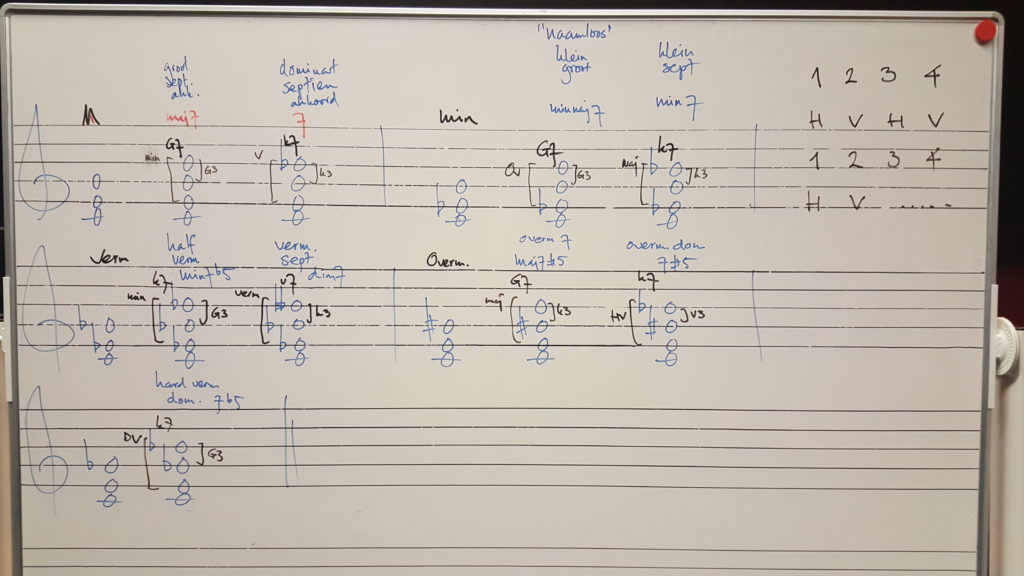 "Naamloos"
groot sept. akk.
dominant septiem akkoord
klein groot
klein sept
1 2 3 4
M
maj7
7
min
minmaj7
min 7
H V H V
min G7 G3
V k7 k3
Ov G7 G3
maj k7 k3
1 2 3 4
H V ......
verm
half verm
min7b5
verm. sept
dim7
Overm.
overm 7
maj7#5
overm. dom
7#5
min k7 G3
verm v7 k3
maj G7 k3
HV k7 V3
hard verm
dom. 7b5
DV k7 G3